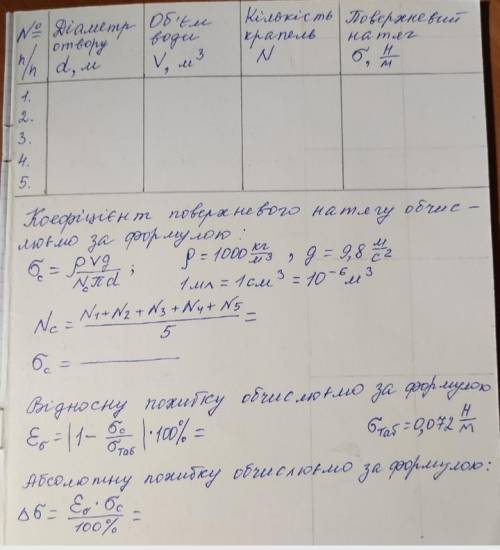 № п/п Діаметр отвору d, м Об'єм води V, м³ Кількість крапель N Поверхневий натяг σ, Н/м
1.
2.
3.
4.
5.
Коефіцієнт поверхневого натягу обчис-
люємо за формулою:
σc = ρVg/Ncπd ; ρ = 1000 кг/м³ , g = 9,8 м/с²
1 мл = 1 см³ = 10⁻⁶ м³
Nc = N1+N2+N3+N4+N5/5 =
σc = ————
Відносну похибку обчислюємо за формулою
Εσ = |1 - σc/σтаб| · 100% = σтаб = 0,072 Н/м
Абсолютну похибку обчислюємо за формулою:
Δσ = Εσ · σc/100% =